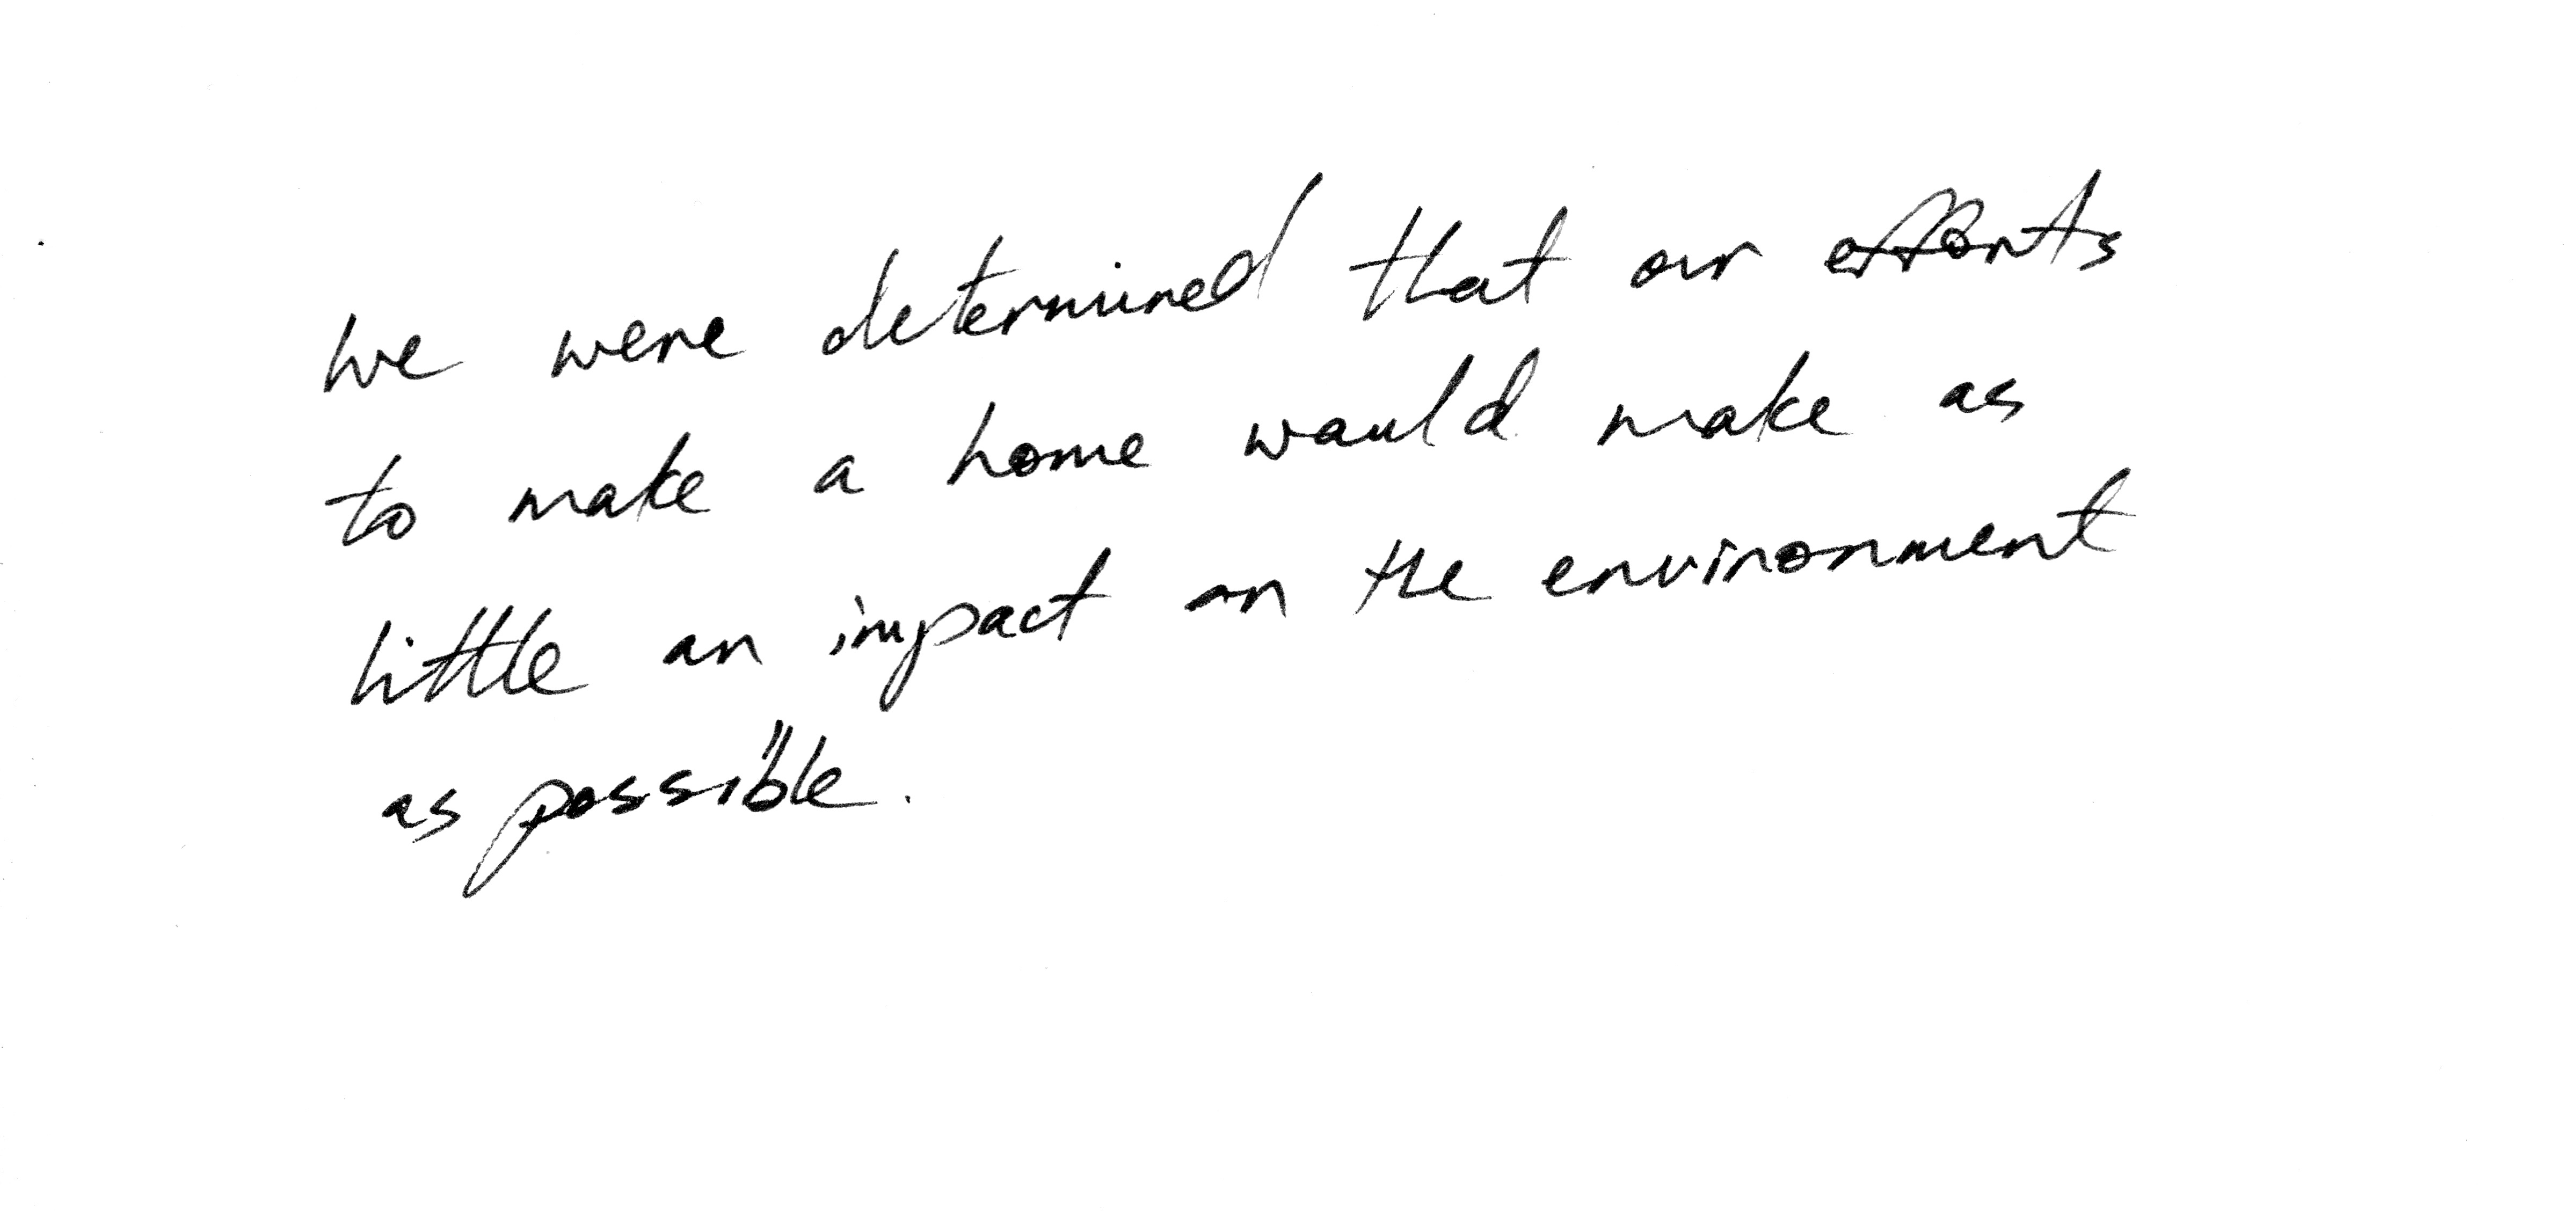 We were determined that our efforts
to make a home would make as
little an impact on the environment
as possible.